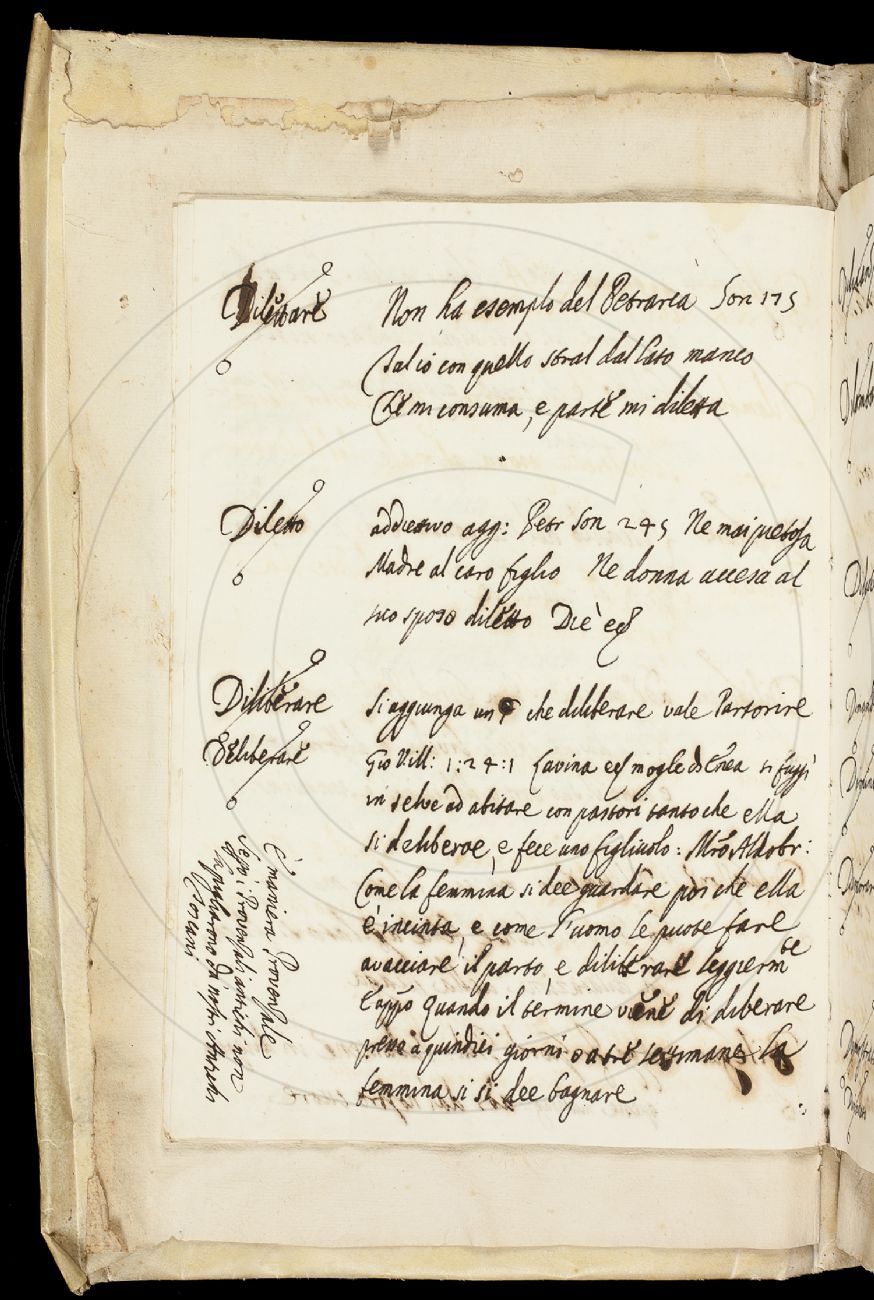 Dilettare Non ha esempio del Petrarca Son 175
Tal io con quello stral dal lato manco
Che mi consuma, e parte mi diletta
Diletto addiettivo agg: Petr Son 245 Ne mai pietosa
Madre al caro figlio Ne donna accesa al
suo sposo diletto Diè ec
Diliberare Si aggiunga un che diliberare vale Partorire
Deliberare Gio Vill: 1:24:1 Lavina ec mogle di Enea si fuggì
in selve ad abitare con pastori tanto che ella
si deliberoe, e fece uno figliuolo: Mro Aldobr:
Come la femmina si dee guardare poi che ella
è incinta, e come l'uomo le puote fare
avacciare il parto, e diliberare leggierm te
E appo Quando il termine viene di diberare
presso a quindici giorni o a tre settimane la
femmina si si dee bagnare
È maniera Provenzale
Leggi i Provenzali antichi non
la pigliarono da nostri Antichi
Toscani